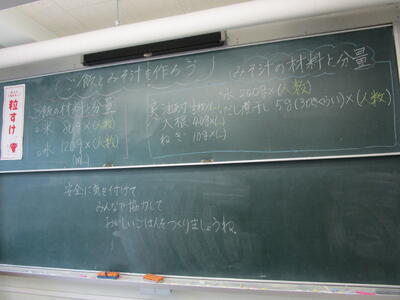 ご飯とみそ汁を作ろう
ご飯の材料と分量
○米 80g×(人数)
○水 120g×(人数)
(mL)
みそ汁の材料と分量
水 200g×(人数)
だし煮干し 5g ×(人数)
大根 40g×(
ねぎ 10g×(
安全に気を付けて
みんなで協力して
おいしいごはんをつくりましょうね。
粒すけ